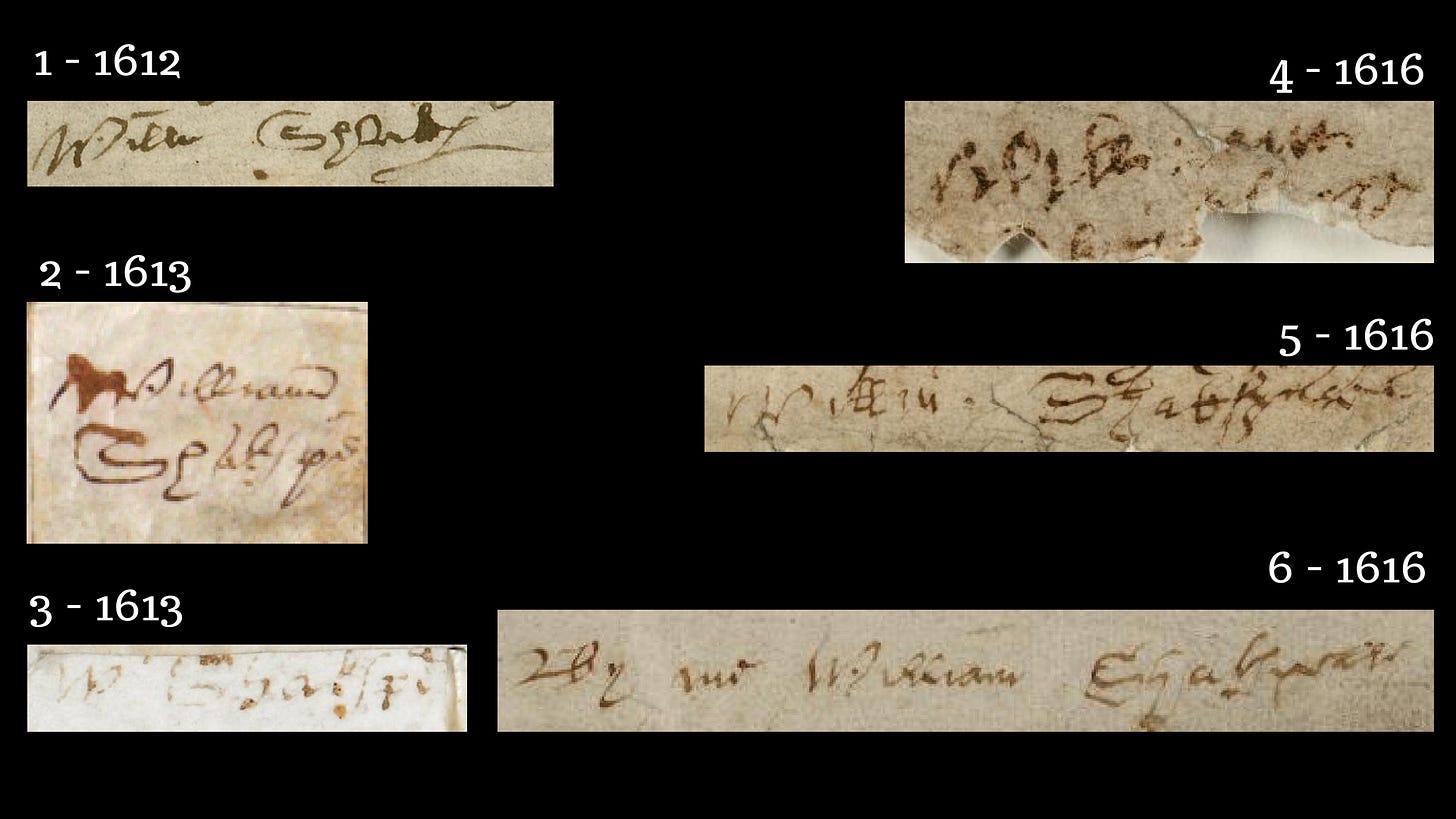 1 - 1612
Willm Shakp
2 - 1613
William
Shakspe
3 - 1613
W Shakspe
4 - 1616
5 - 1616
Willm Shakspere
6 - 1616
By me William Shakspeare